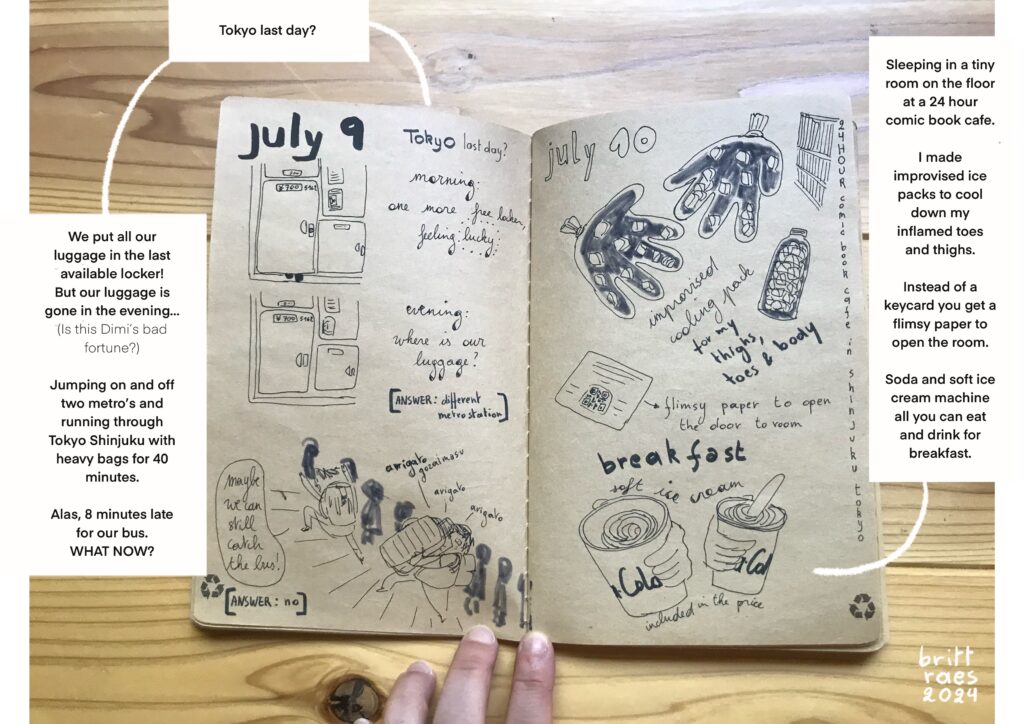 Tokyo last day?
We put all our
luggage in the last
available locker!
But our luggage is
gone in the evening...
(Is this Dimi's bad
fortune?)
Jumping on and off
two metro's and
running through
Tokyo Shinjuku with
heavy bags for 40
minutes.
Alas, 8 minutes late
for our bus.
WHAT NOW?
july 9
Tokyo last day?
morning:
one more free locker,
feeling lucky.
¥700 5162
evening:
where is our
luggage?
¥700 5162
[ANSWER: different
metrostation]
arrigato
gozaimasu
arigato
arigato
maybe
we can
still
catch
the bus!
[ANSWER: no]
july 10
24 HOUR comic book cafe in shinjuku tokyo
improvised
cooling pack
for my
thighs,
toes & body
flimsy paper to open
the door to room
breakfast
soft ice cream
Cola
Col
included in the price
Sleeping in a tiny
room on the floor
at a 24 hour
comic book cafe.
I made
improvised ice
packs to cool
down my
inflamed toes
and thighs.
Instead of a
keycard you get a
flimsy paper to
open the room.
Soda and soft ice
cream machine
all you can eat
and drink for
breakfast.
britt
raes
2024